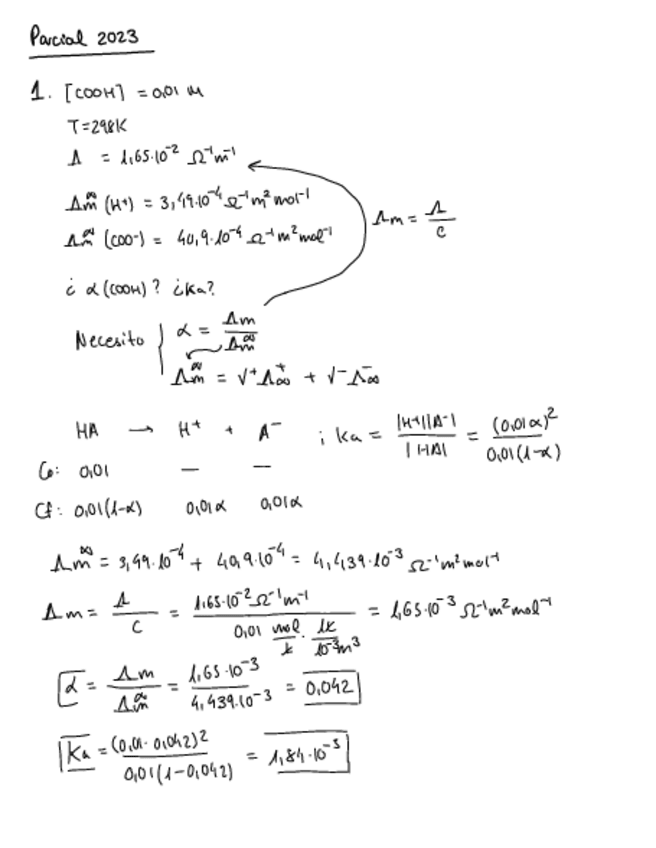 Parcial 2023
1. [COOH] = 0,01 M
T = 298K
Λ = 1,65·10⁻² Ω⁻¹m⁻¹
Λm^∞ (H⁺) = 3,49·10⁻⁴ Ω⁻¹m²mol⁻¹
Λm^∞ (COO⁻) = 40,9·10⁻⁴ Ω⁻¹m²mol⁻¹
Λm = Λ/C
¿α(COOH)? ¿Ka?
Necesito { α = Λm/Λm^∞
Λm^∞ = √⁺Λ∞⁺ + √⁻Λ∞⁻
HA → H⁺ + A⁻ ; Ka = |H⁺||A⁻|/|HA| = (0,01α)²/0,01(1-α)
Co: 0,01 — —
Cf: 0,01(1-α) 0,01α 0,01α
Λm^∞ = 3,49·10⁻⁴ + 40,9·10⁻⁴ = 4,439·10⁻³ Ω⁻¹m²mol⁻¹
Λm = Λ/C = 1,65·10⁻² Ω⁻¹m⁻¹/(0,01 mol/ℓ · 1ℓ/10⁻³m³) = 1,65·10⁻³ Ω⁻¹m²mol⁻¹
α = Λm/Λm^∞ = 1,65·10⁻³/4,439·10⁻³ = 0,042
Ka = (0,01·0,042)²/0,01(1-0,042) = 1,84·10⁻⁵